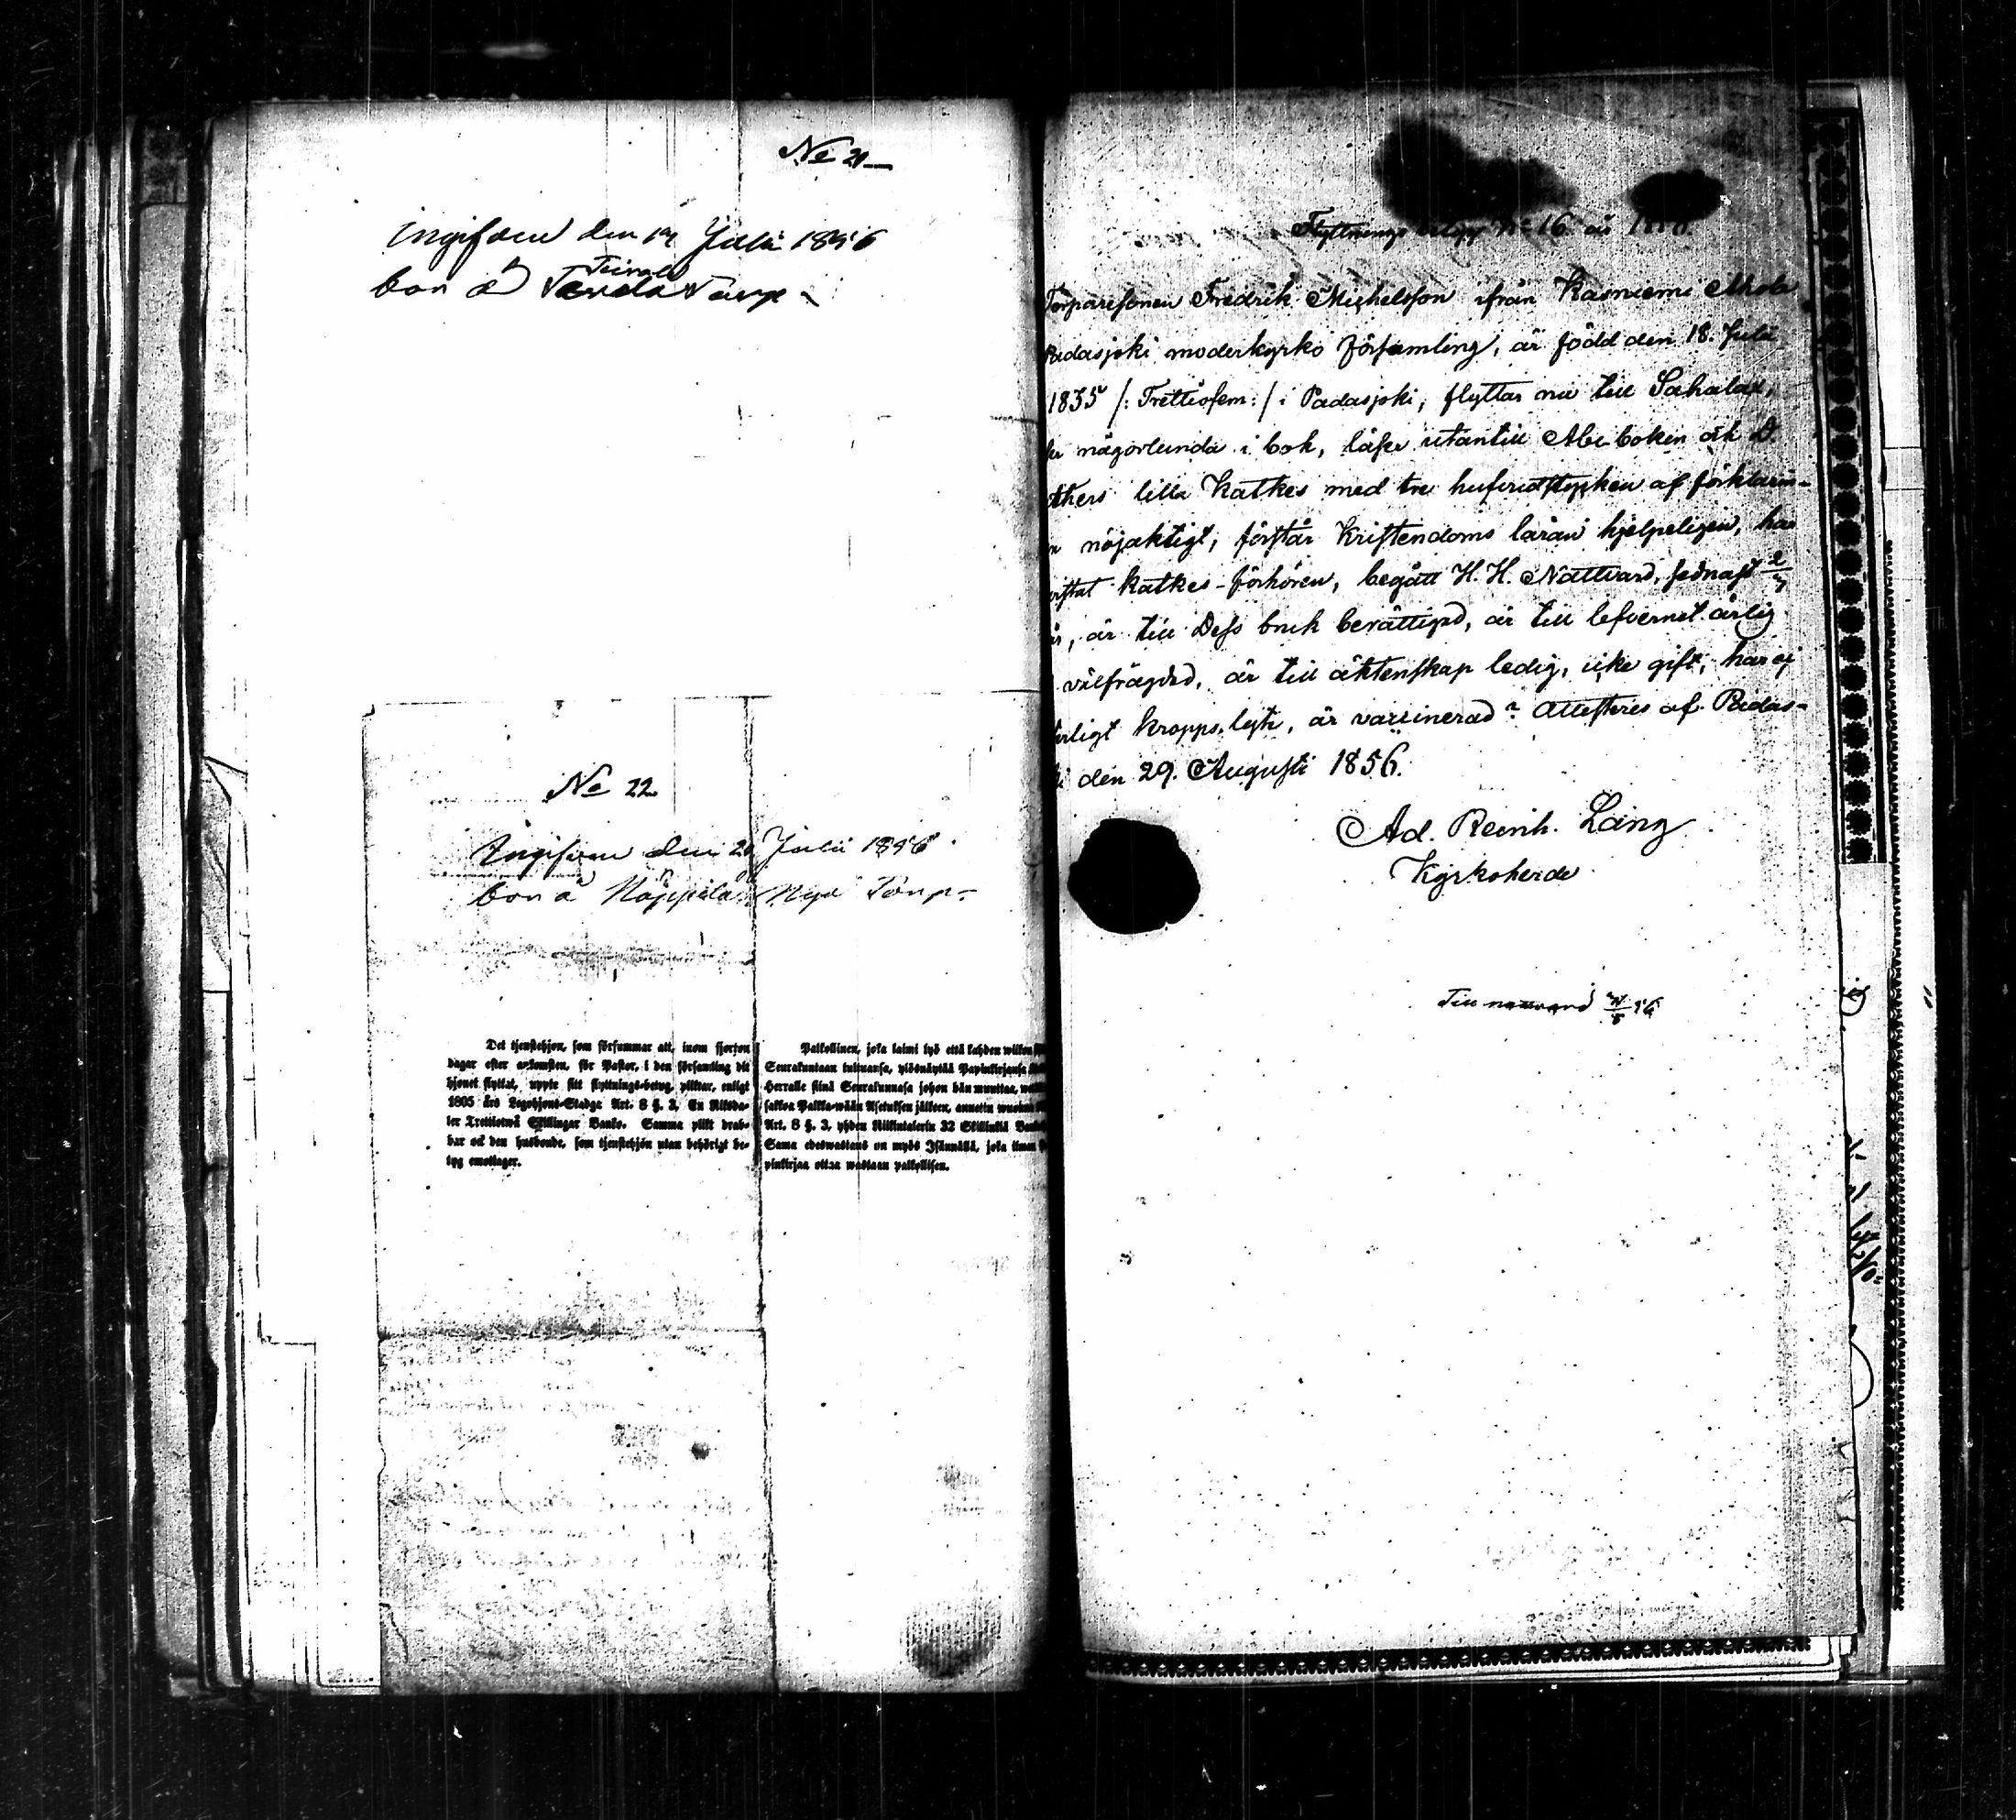 No 21
ingifven den 14 Juli 1856
bor å Torp
No 22
Ingifven den 20 Juli 1856
bor å Näppilä Nya Torp
Det tjenstehjon, som försummar att, inom fjorton
dagar efter ankomsten, för Pastor, i den församling dit
hjonet flyttat, uppte sitt flyttnings-betyg, pliktar, enligt
1805 års Legohjons-Stadga Art. 8 §. 3, En Riksda-
ler Trettiotwå Skillingar Banko. Samma plikt drab-
bar ock den husbonde, som tjenstehjon utan behörigt be-
tyg emottager.
Palkollinen, joka laimi lyö että kahden wiikon
Seurakuntaan tultuansa, ylösnäyttää Papinkirjansa
Herralle siinä Seurakunnasa johon hän muuttaa,
sakkoa Palkka-wään Asetuksen jälkeen, annettu wuonna
Art. 8 §. 3, yhden Riikintalerin 32 Skillinkiä
Sama edeswastaus on myös Isännällä, joka ilman
pinkirjaa ottaa wastaan palkollisen.
Flyttnings betyg No 16 år
Torparesonen Fredrik Michelsson ifrån Kasniemi
Padasjoki moderkyrko Församling, är född den 18. Juli
1835 /: Trettiofem :/ i Padasjoki, flyttar nu till Sahalax,
någorlunda i bok, läser utantill Abc boken och D.
thers lilla Katkes med tre hufvudstycken af förklarin-
nöjaktigt, förstår Kristendoms läran hjelpeligen, har
vistat Katkes-förhören, begått H. H. Nattvard, sednast 2/7
är till Dess bruk berättigad, är till lefvernet ärlig
välfrägdad, är till äktenskap ledig, icke gift, har ej
terligt kropps lyte, är vaccinerad. Attesteras af Padas-
ki den 29. Augusti 1856.
Ad. Reinh. Lang
Kyrkoherde